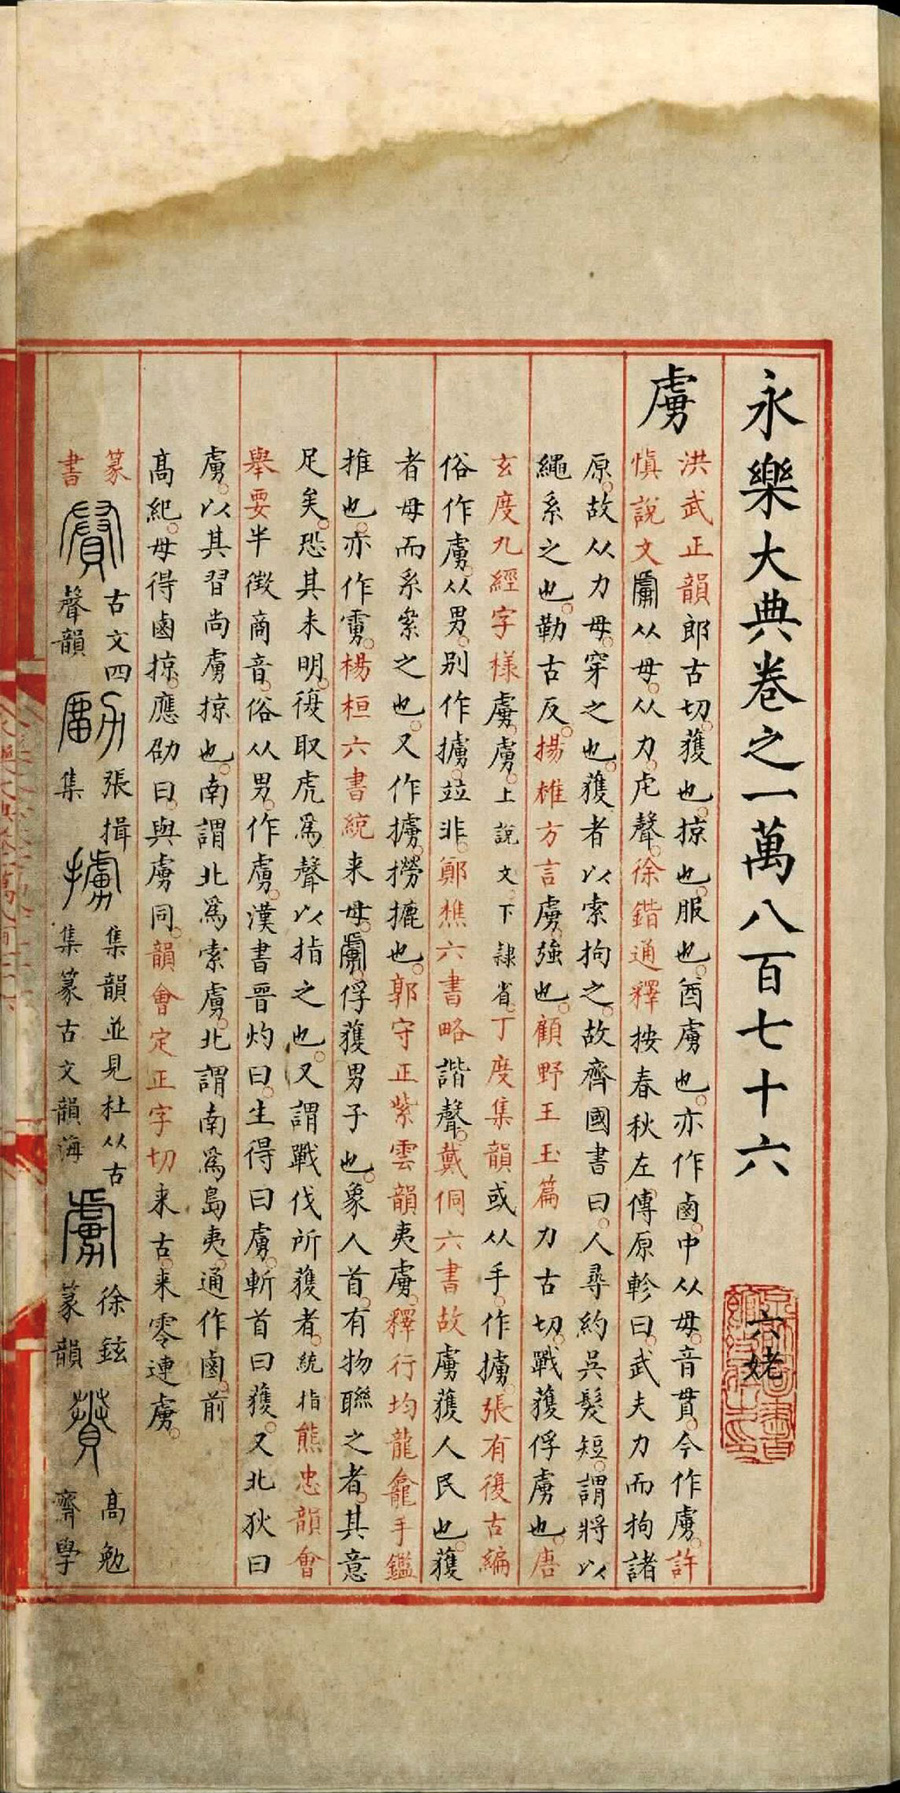 永樂大典卷之一萬八百七十六
六姥
虜
洪武正韻郎古切獲也掠也服也酋虜也亦作鹵中从毋音貫今作虜許
慎說文从毋从力虍聲徐鍇通釋按春秋左傳原軫曰武夫力而拘諸
原故从力毋穿之也獲者以索拘之故齊國書曰人尋約吳髮短謂將以
繩系之也勒古反揚雄方言虜強也顧野王玉篇力古切戰獲俘虜也唐
玄度九經字樣虜上說文下隸省丁度集韻或从手作擄張有復古編
俗作虜从男別作擄竝非鄭樵六書略諧聲戴侗六書故虜獲人民也獲
者毋而系絫之也又作擄撈摝也郭守正紫雲韻夷虜釋行均龍龕手鑑
推也亦作楊桓六書統來毋俘獲男子也象人首有物聯之者其意
足矣恐其未明復取虎爲聲以指之也又謂戰伐所獲者統指熊忠韻會
舉要半徵商音俗从男作虜漢書晉灼曰生得曰虜斬首曰獲又北狄曰
虜以其習尚虜掠也南謂北爲索虜北謂南爲島夷通作鹵前
高紀毋得鹵掠應劭曰與虜同韻會定正字切來古來零連虜
篆
書
古文四
聲韻
張揖
集
集韻並見杜从古
集篆古文韻海
徐鉉
篆韻
高勉
齊學